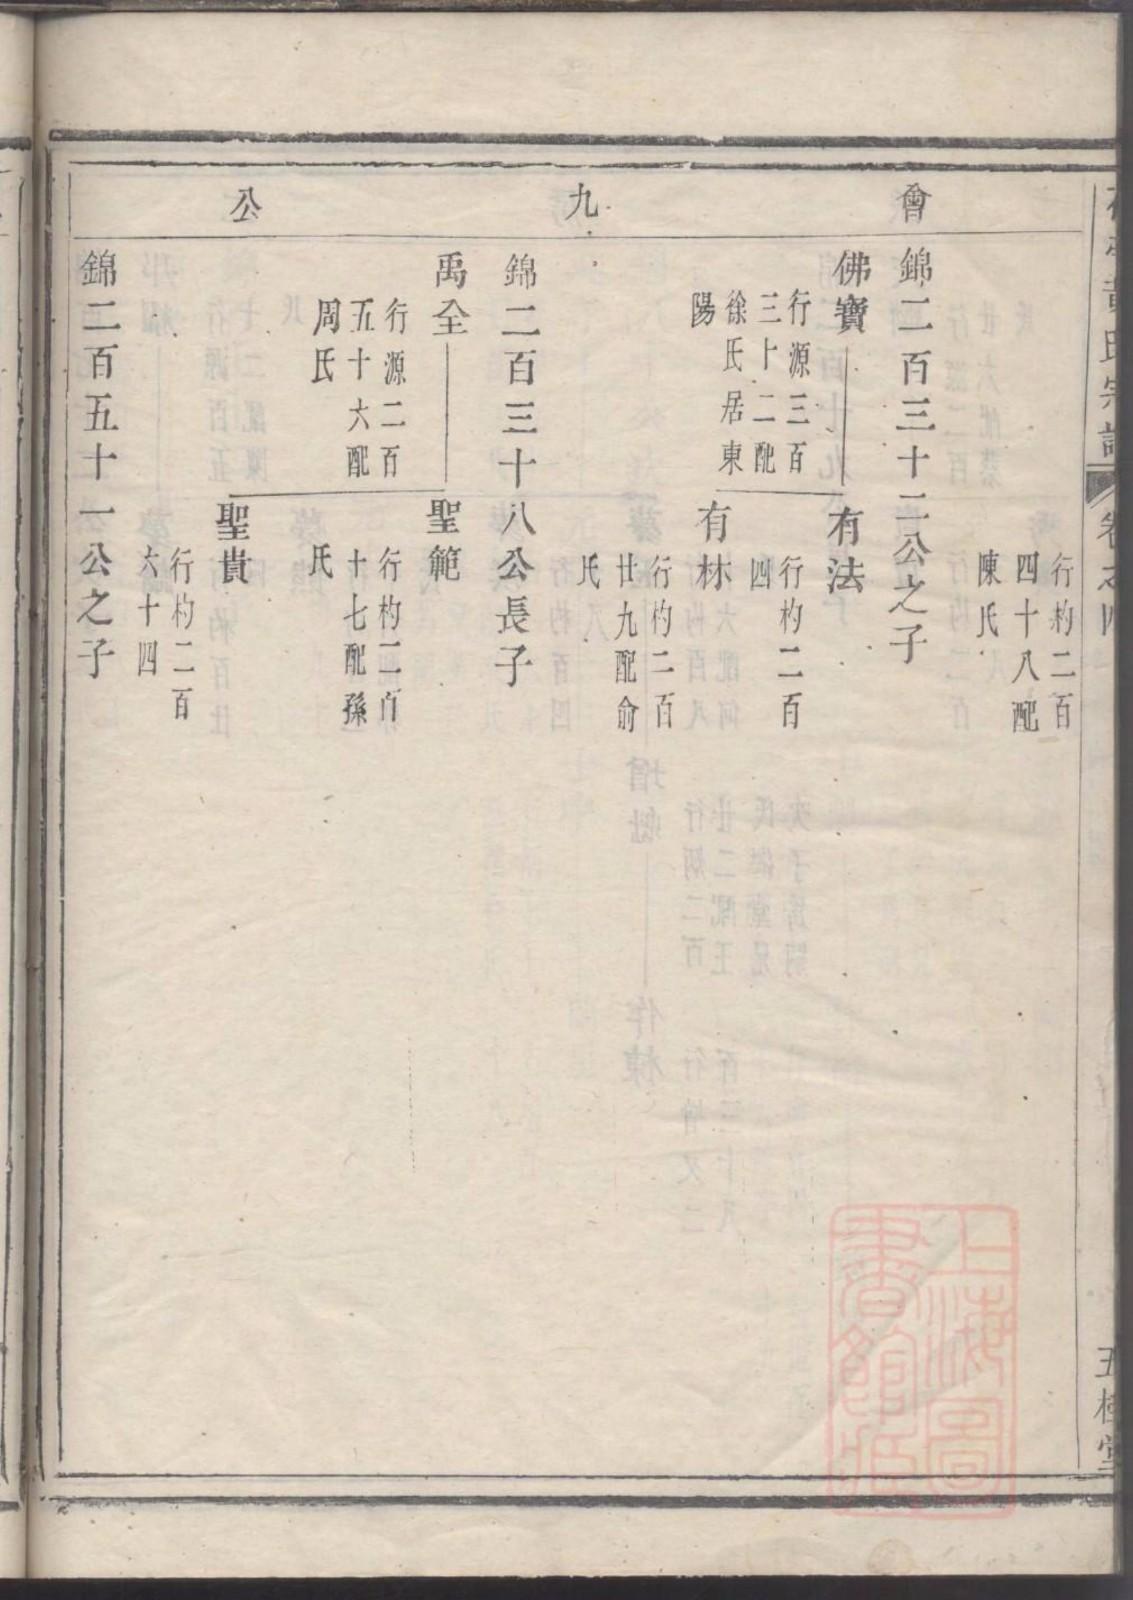 會九公
黃氏宗譜 卷之四 五桂堂
行杓二百
四十八配
陳氏
錦二百三十二公之子
佛寶
行源三百
三十二配
徐氏居東
陽
有法
行杓二百
四
有林
行杓二百
廿九配俞
氏
錦二百三十八公長子
禹全
行源二百
五十六配
周氏
聖範
行杓二百
十七配孫
氏
聖貴
行杓二百
六十四
錦二百五十一公之子
上海圖
書館藏